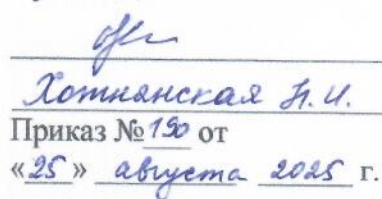 Хотнянская Н. И.
Приказ №190 от
«25» августа 2025 г.